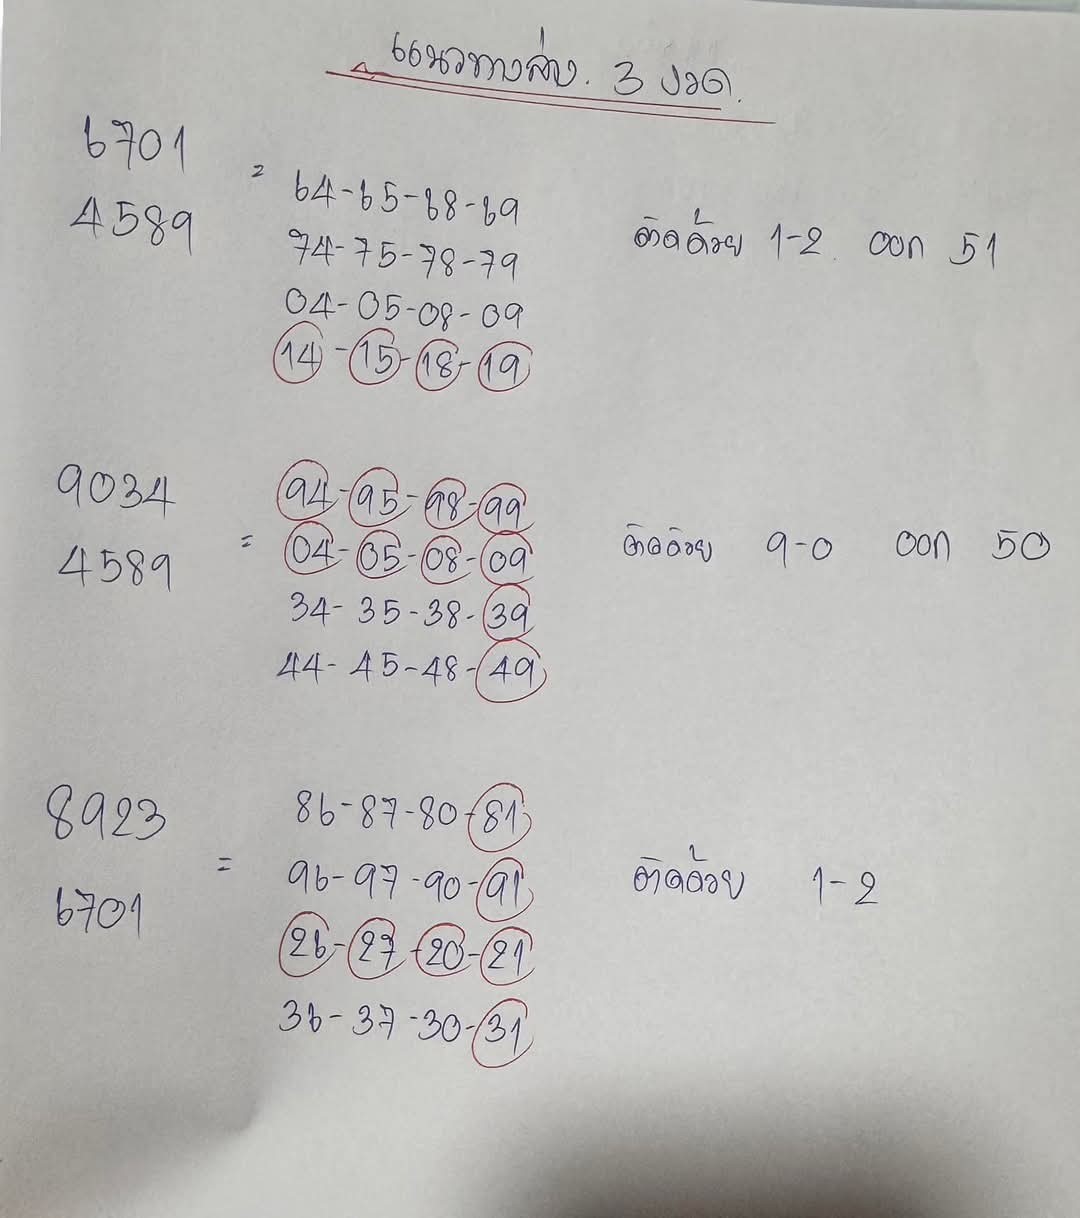 แนวทางล่าง. 3 งวด.
6701
4589
=
64-65-68-69
74-75-78-79
04-05-08-09
14-15-18-19
ติดด้วย 1-2. ออก 51
9034
4589
=
94-95-98-99
04-05-08-09
34-35-38-39
44-45-48-49
ติดด้วย 9-0 ออก 50
8923
6701
=
86-87-80-81
96-97-90-91
26-27-20-21
36-37-30-31
ติดด้วย 1-2